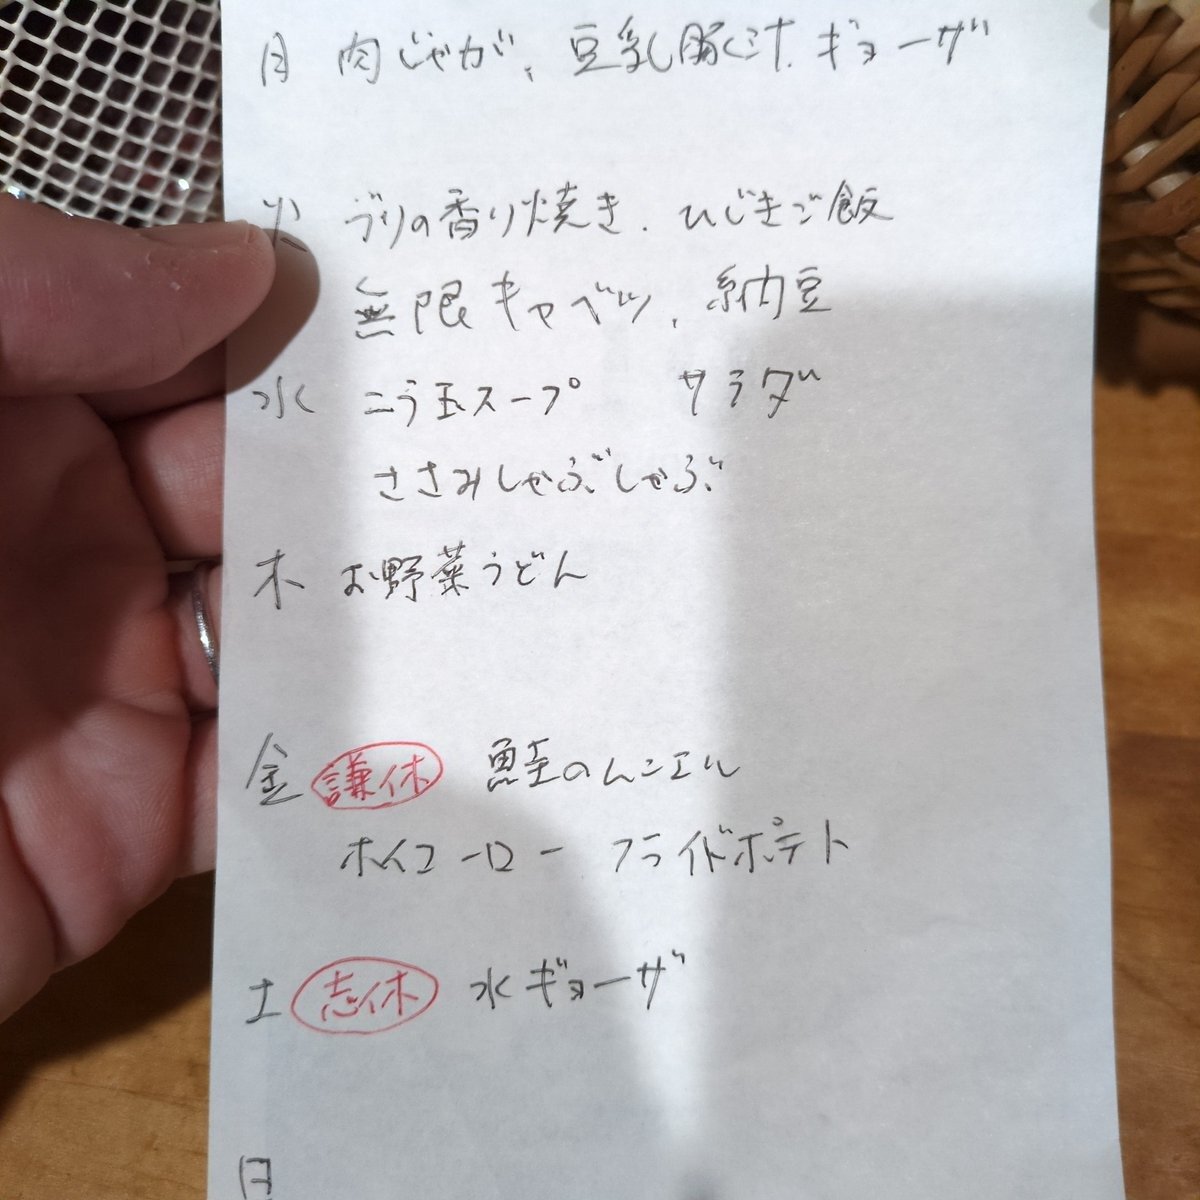 月 肉じゃが、豆乳豚汁、ギョーザ
火 ブリの香り焼き、ひじきご飯
無限キャベツ、納豆
水 ニラ玉スープ サラダ
ささみしゃぶしゃぶ
木 お野菜うどん
金 謙休 鮭のムニエル
ホイコーロー フライドポテト
土 志休 水ギョーザ
日